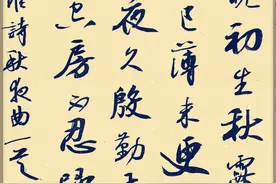 初生秋露
已薄未更
夜久殷勤
空房不忍歸
詩秋夜曲一首